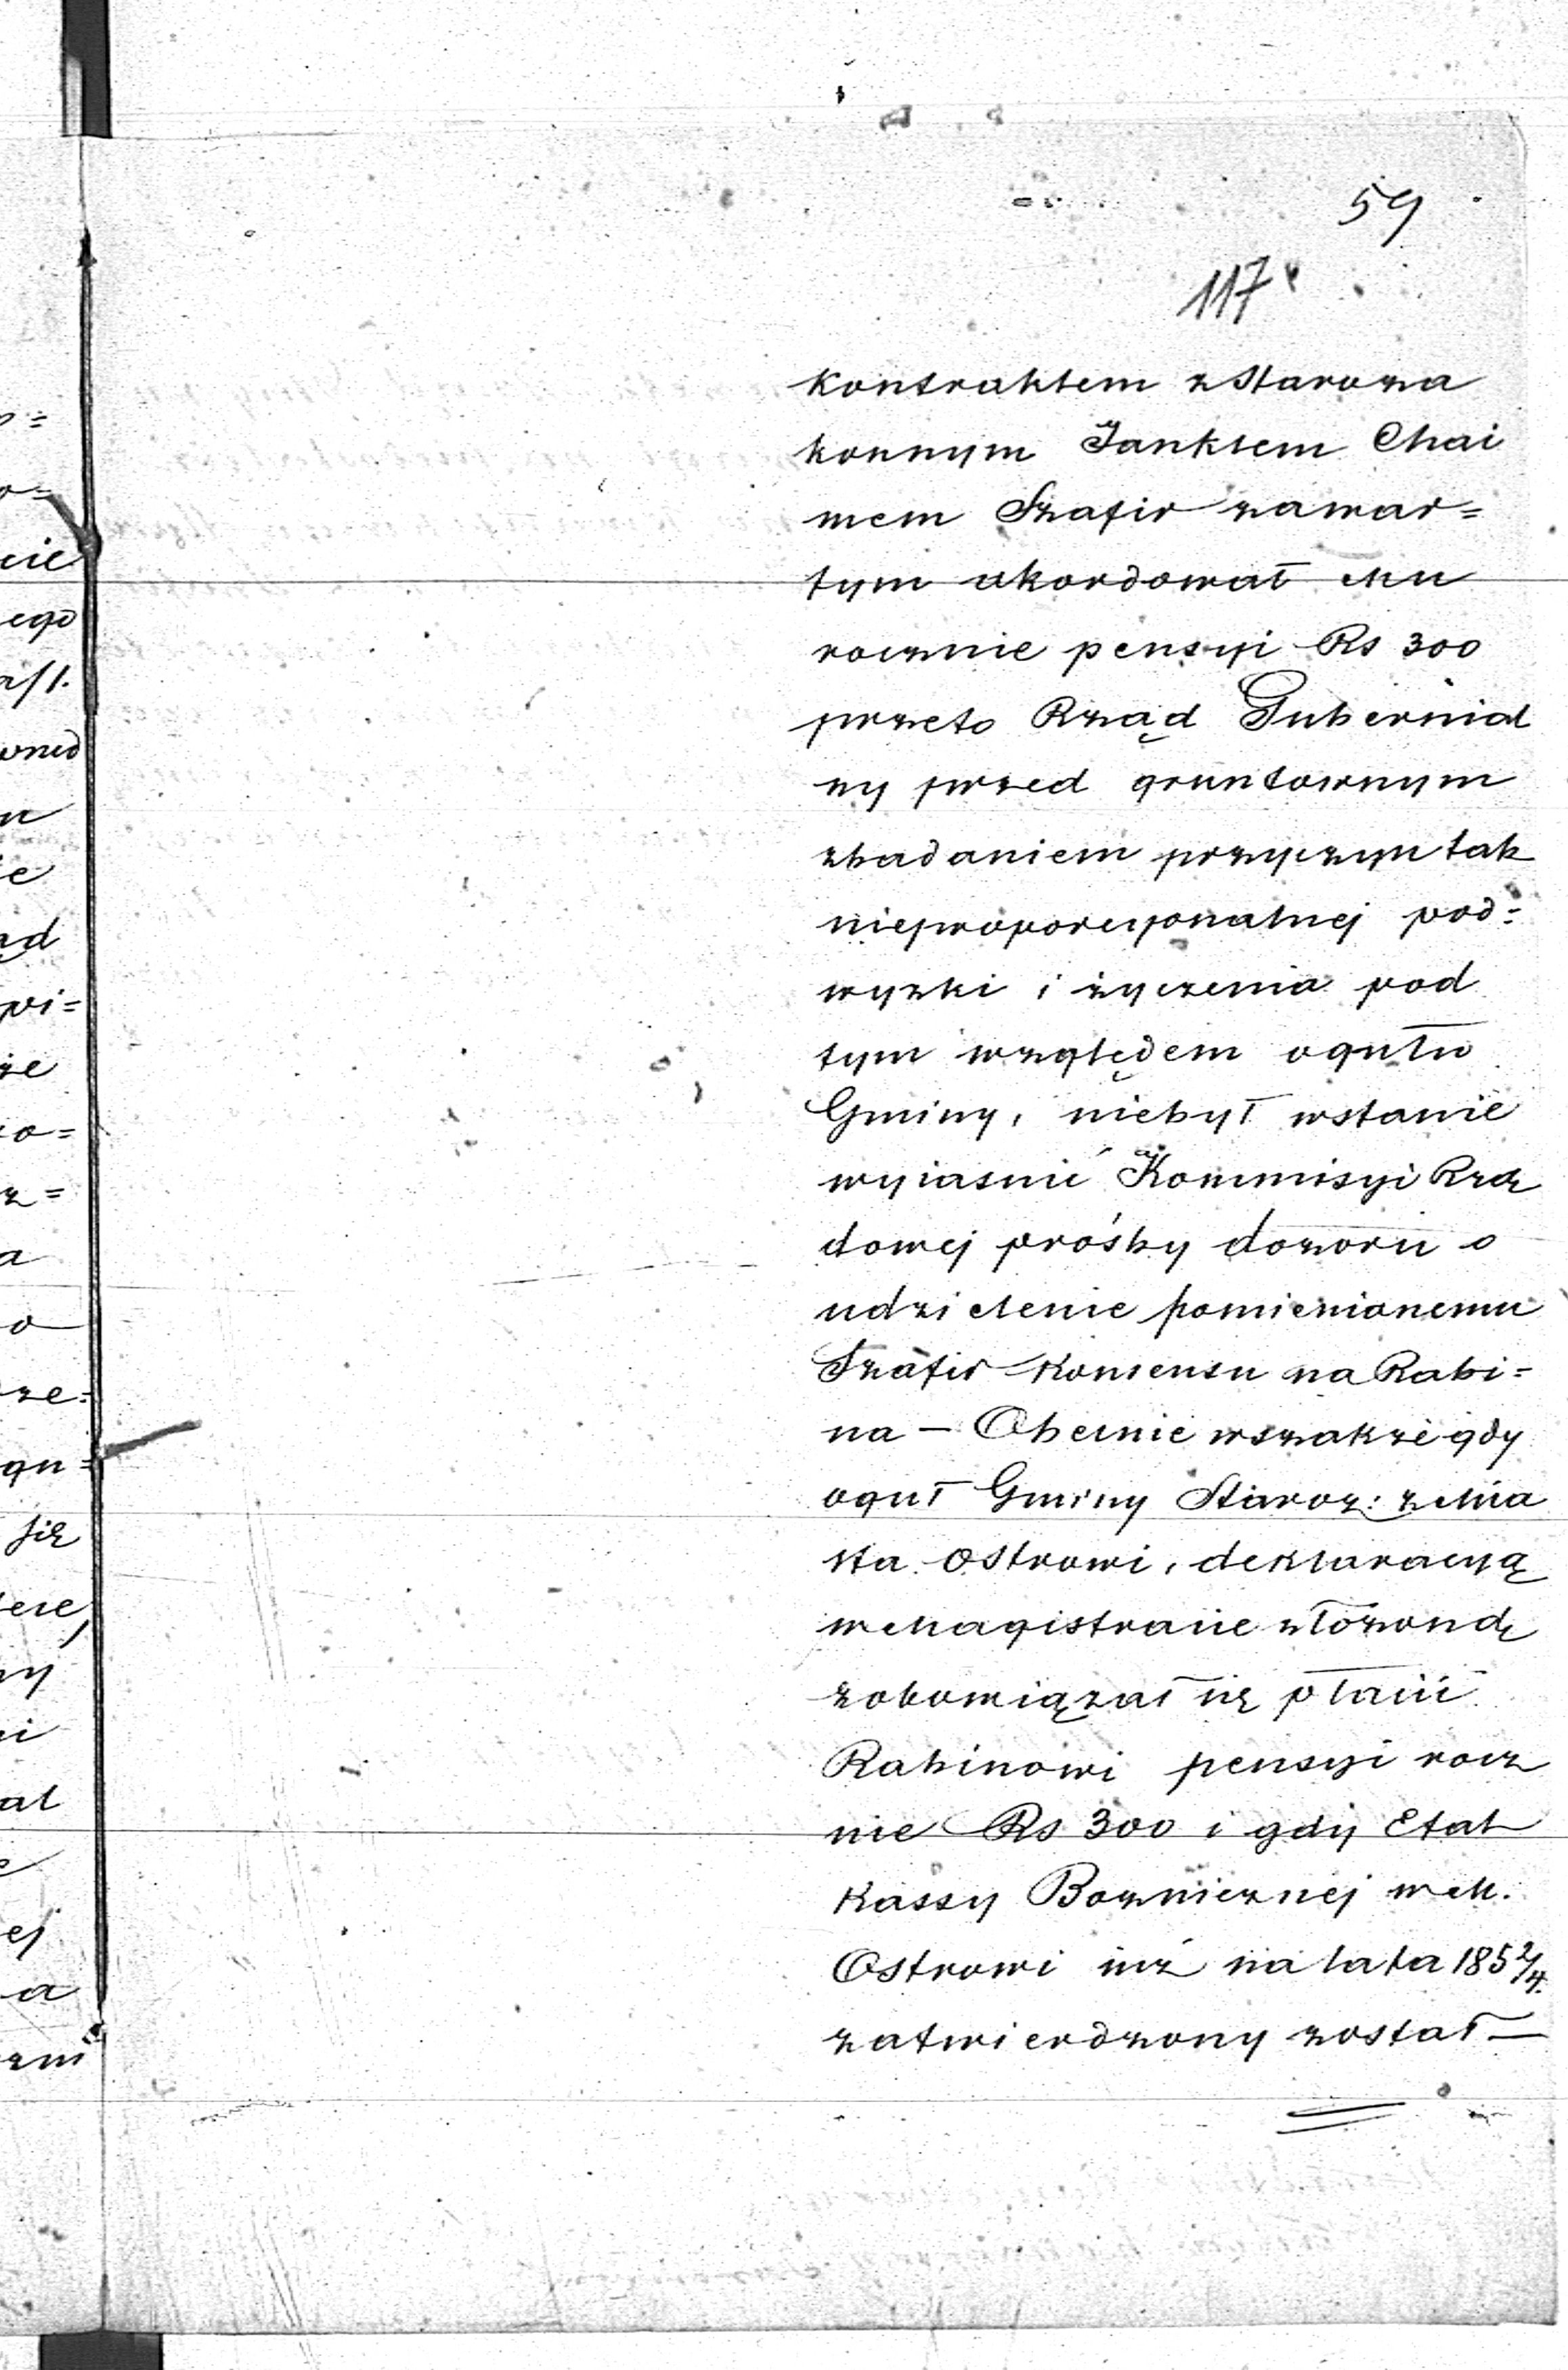 59
117
kontraktem z Staroza
konnym Janklem Chai
mem Szafir zawar=
tym akordował mu
rocznie pensyi Rs 300
przeto Rząd Gubernial
ny przed gruntownym
zbadaniem przyczyn tak
nieproporcyonalnej pod=
wyzki i życzenia pod
tym względem ogułu
Gminy, niebył wstanie
wyiasnić Kommisyi Rzą
dowej prośby dozoru o
udzielenie pomienionemu
Szafir konsensu na Rabi=
na — Obecnie wszakże gdy
oguł Gminy Staroz: z Mia
sta Ostrowi, deklaracyą
w Magistracie złożoną
zobowiązał się płacić
Rabinowi pensyi rocz
nie Rs 300 i gdy Etat
Kassy Bozniczney w M.
Ostrowi już na lata 1852/4.
zatwierdzony został —
cie
ego
a/1.
n
ie
ąd
wi=
że
ro=
z=
a
o
rze=
gu=
się
ny
ni
at
ej
a